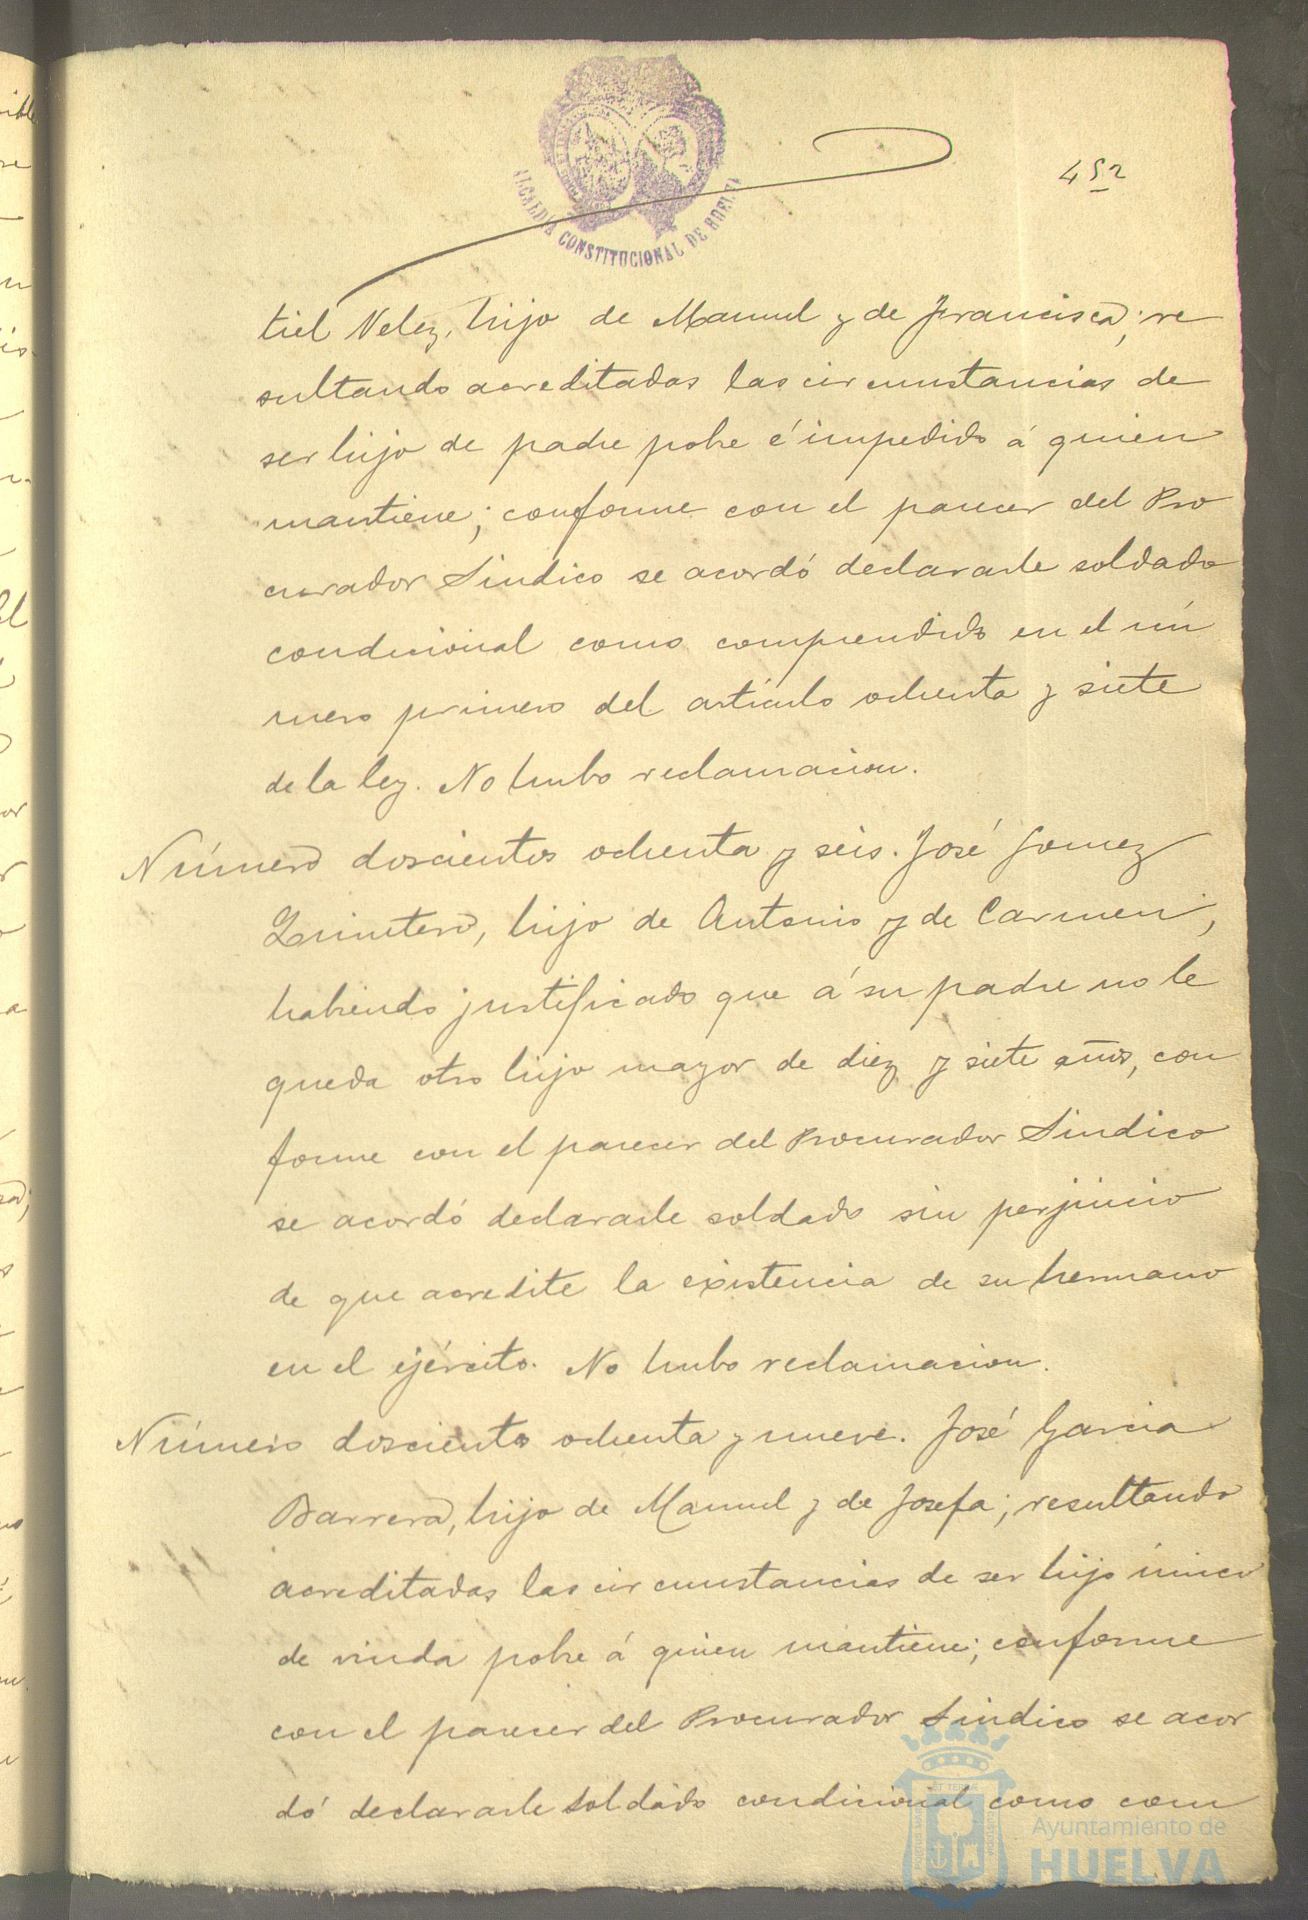 ALCALDIA CONSTITUCIONAL DE HUELVA
tiel Velez, hijo de Manuel y de Francisca; re
sultando acreditadas las circunstancias de
ser hijo de padre pobre é impedido á quien
mantiene; conforme con el parecer del Pro
curador Sindico se acordó declararle soldado
condicional como comprendido en el nú
mero primero del artículo ochenta y siete
de la ley. No hubo reclamacion.
Número doscientos ochenta y seis. José Gomez
Quintero, hijo de Antonio y de Carmen,
habiendo justificado que á su padre no le
queda otro hijo mayor de diez y siete años, con
forme con el parecer del Procurador Sindico
se acordó declararle soldado sin perjuicio
de que acredite la existencia de su hermano
en el ejército. No hubo reclamacion.
Número doscientos ochenta y nueve. José Garcia
Barrera, hijo de Manuel y de Josefa; resultando
acreditadas las circunstancias de ser hijo único
de viuda pobre á quien mantiene; conforme
con el parecer del Procurador Sindico se acor
dó declararle soldado condicional como com
Ayuntamiento de
HUELVA